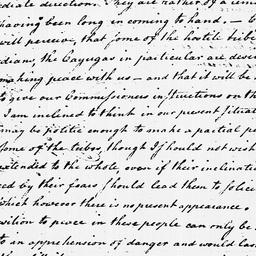 ediate direction. They are rather of a
having been long in coming to hand. —
will perceive, that some of the hostile tribe
dians, the Cayugas in particular are desir
making peace with us — and that it will be
to give our Commissioners instructions on th
I am inclined to think in our present situa
may be politic enough to make a partial pe
some of the tribes, though I should not wish
extended to the whole, even if their inclinati
ed by their fears should lead them to solici
which however there is no present appearance.
osition to peace in these people can only be
to an apprehension of danger and would las